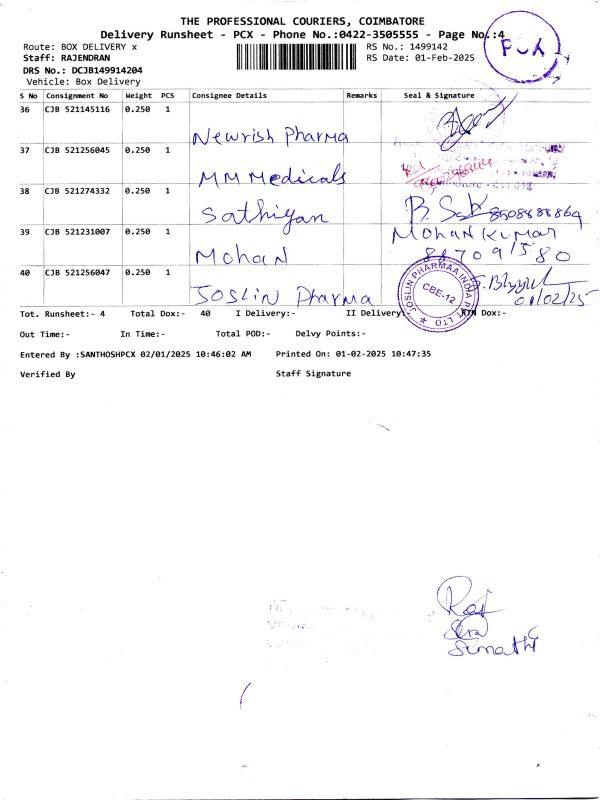 THE PROFESSIONAL COURIERS, COIMBATORE
Delivery Runsheet - PCX - Phone No.:0422-3505555 - Page No.:4
Route: BOX DELIVERY x
RS No.: 1499142
Staff: RAJENDRAN
RS Date: 01-Feb-2025
DRS No.: DCJB149914204
Vehicle: Box Delivery
S No Consignment No Weight PCS Consignee Details Remarks Seal & Signature
36 CJB 521145116 0.250 1
Newrish Pharma
37 CJB 521256045 0.250 1
MM Medicals
38 CJB 521274332 0.250 1
Sathiyan 8508888864
39 CJB 521231007 0.250 1 Mohan Kumar
Mohan 8870915580
40 CJB 521256047 0.250 1
JOSLIN Pharma 01/02/25
JOSLIN PHARMAA INDIA PVT LTD
CBE-12
Tot. Runsheet:- 4 Total Dox:- 40 I Delivery:- II Delivery:- RTN Dox:-
Out Time:- In Time:- Total POD:- Delvy Points:-
Entered By :SANTHOSHPCX 02/01/2025 10:46:02 AM Printed On: 01-02-2025 10:47:35
Verified By Staff Signature
Raj